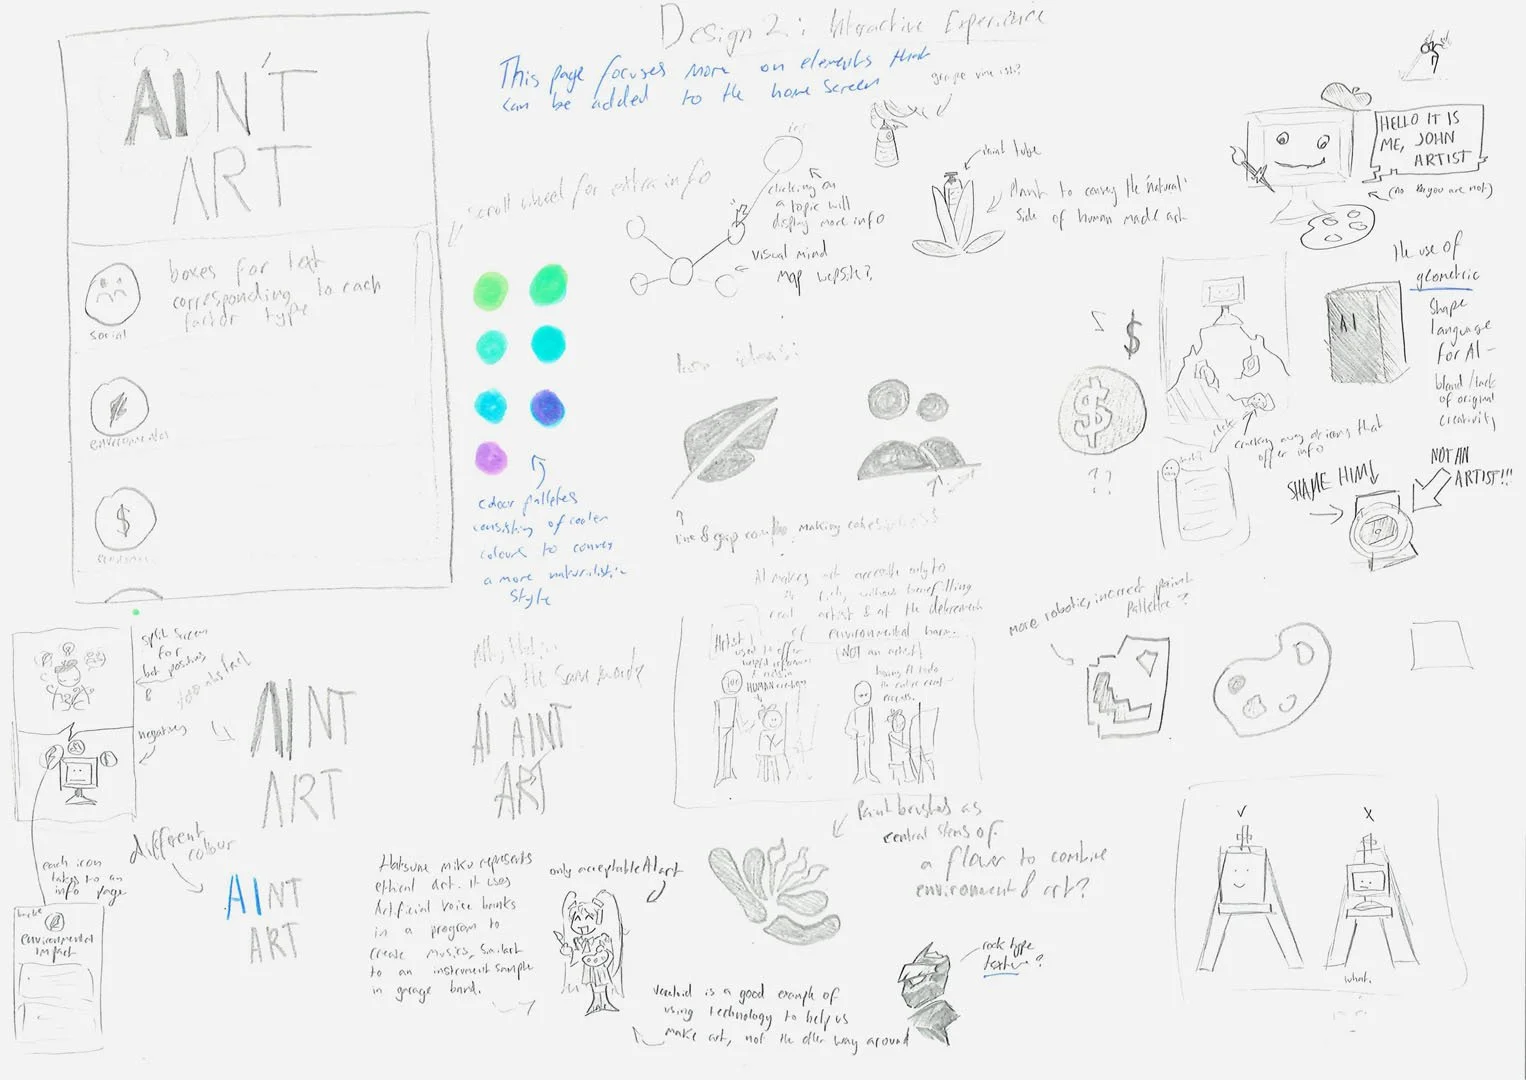 Design 2: Interactive Experience
This page focuses more on elements that
can be added to the home screen
AIN'T
ART
scroll wheel for extra info
social
boxes for text
corresponding to each
factor type
environmental
$
clicking on
a topic will
display more info
visual mind
map website?
paint tube
Plant to convey the 'natural'
side of human made art
HELLO IT IS
ME, JOHN
ARTIST
(no you are not)
the use of
geometric
shape
language
for AI -
bland/lack
of original
creativity
AI
$
$
??
click
cracking away at icons that
offer info
SHAME HIM!
NOT AN
ARTIST!!!
Icon ideas:
colour palletes
consisting of cooler
colours to convey
a more naturalistic
style
AI making art accessible only to
the rich, without benefitting
real artist & at the detrement
of environmental harm.
Artist
used to offer
helpful references
HUMAN creations
NOT an artist
having AI do
the entire creative
process.
More robotic, incorrect paint
pallette?
split screen
for
both positives
&
negatives
each icon
takes to an
info page
environmental
impact
AINT
ART
different
colour
AINT
ART
the same words
AI AINT
ART
Hatsune miku represents
ethical art. it uses
Artificial voice banks
in a program to
create musics, similar
to an instrument sample
in garage band.
only acceptable AI art
Vocaloid is a good example of
using technology to help us
make art, not the other way around
Paintbrushes as
central stems of
a flower to combine
environment & art?
rock type
texture?
what.